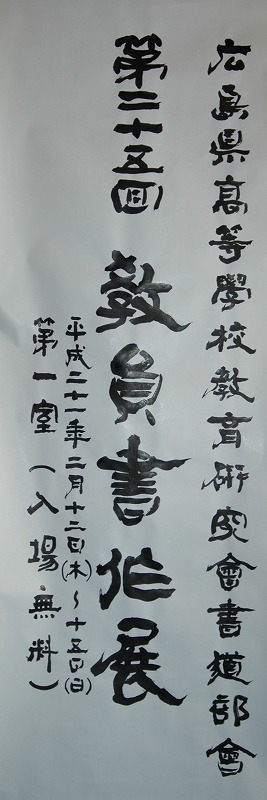 広島県高等學校教育研究會書道部會
第二十五回 教員書作展
平成二十一年二月十二日(木)～十五日(日)
第一室(入場無料)